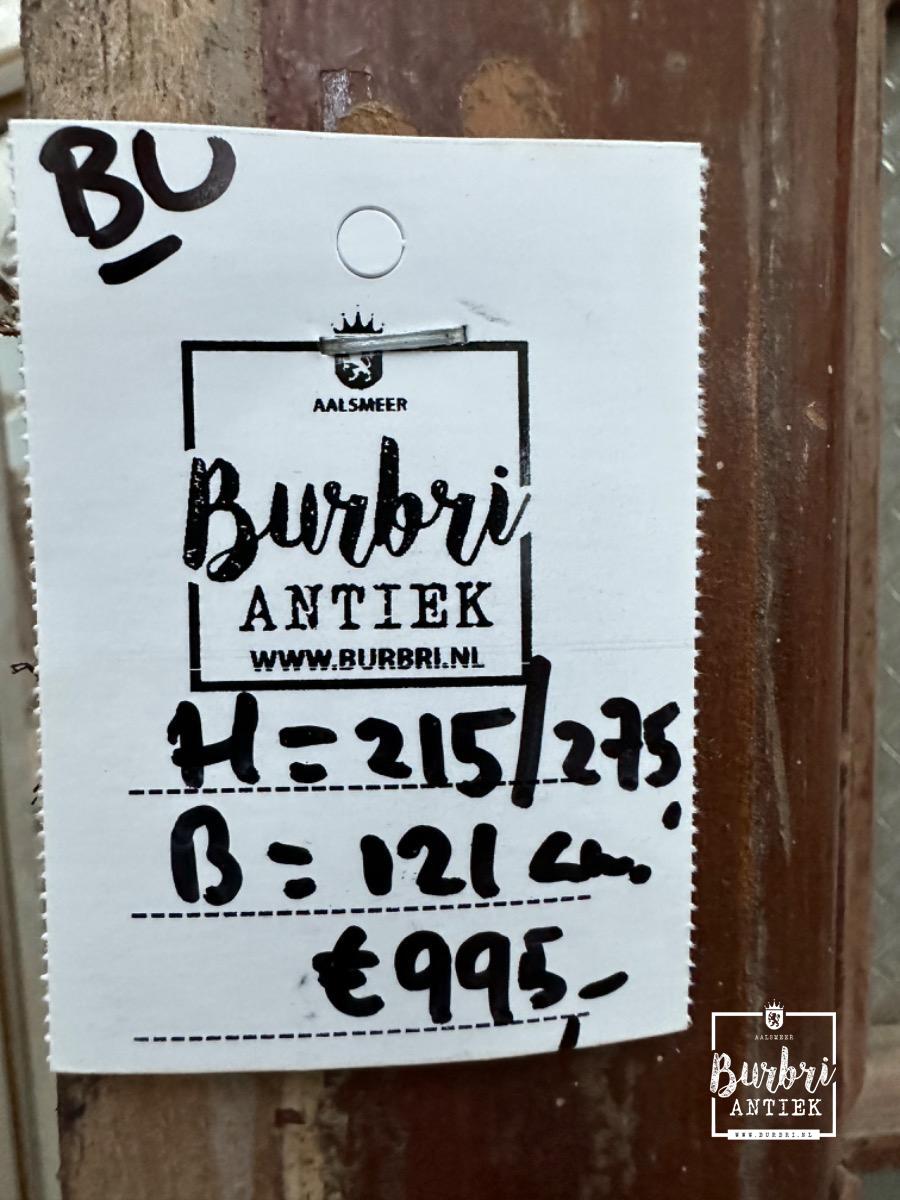 BU
AALSMEER
Burbri
ANTIEK
WWW.BURBRI.NL
H = 215/275
B = 121 cm.
€ 995,-
AALSMEER
Burbri
ANTIEK
WWW.BURBRI.NL